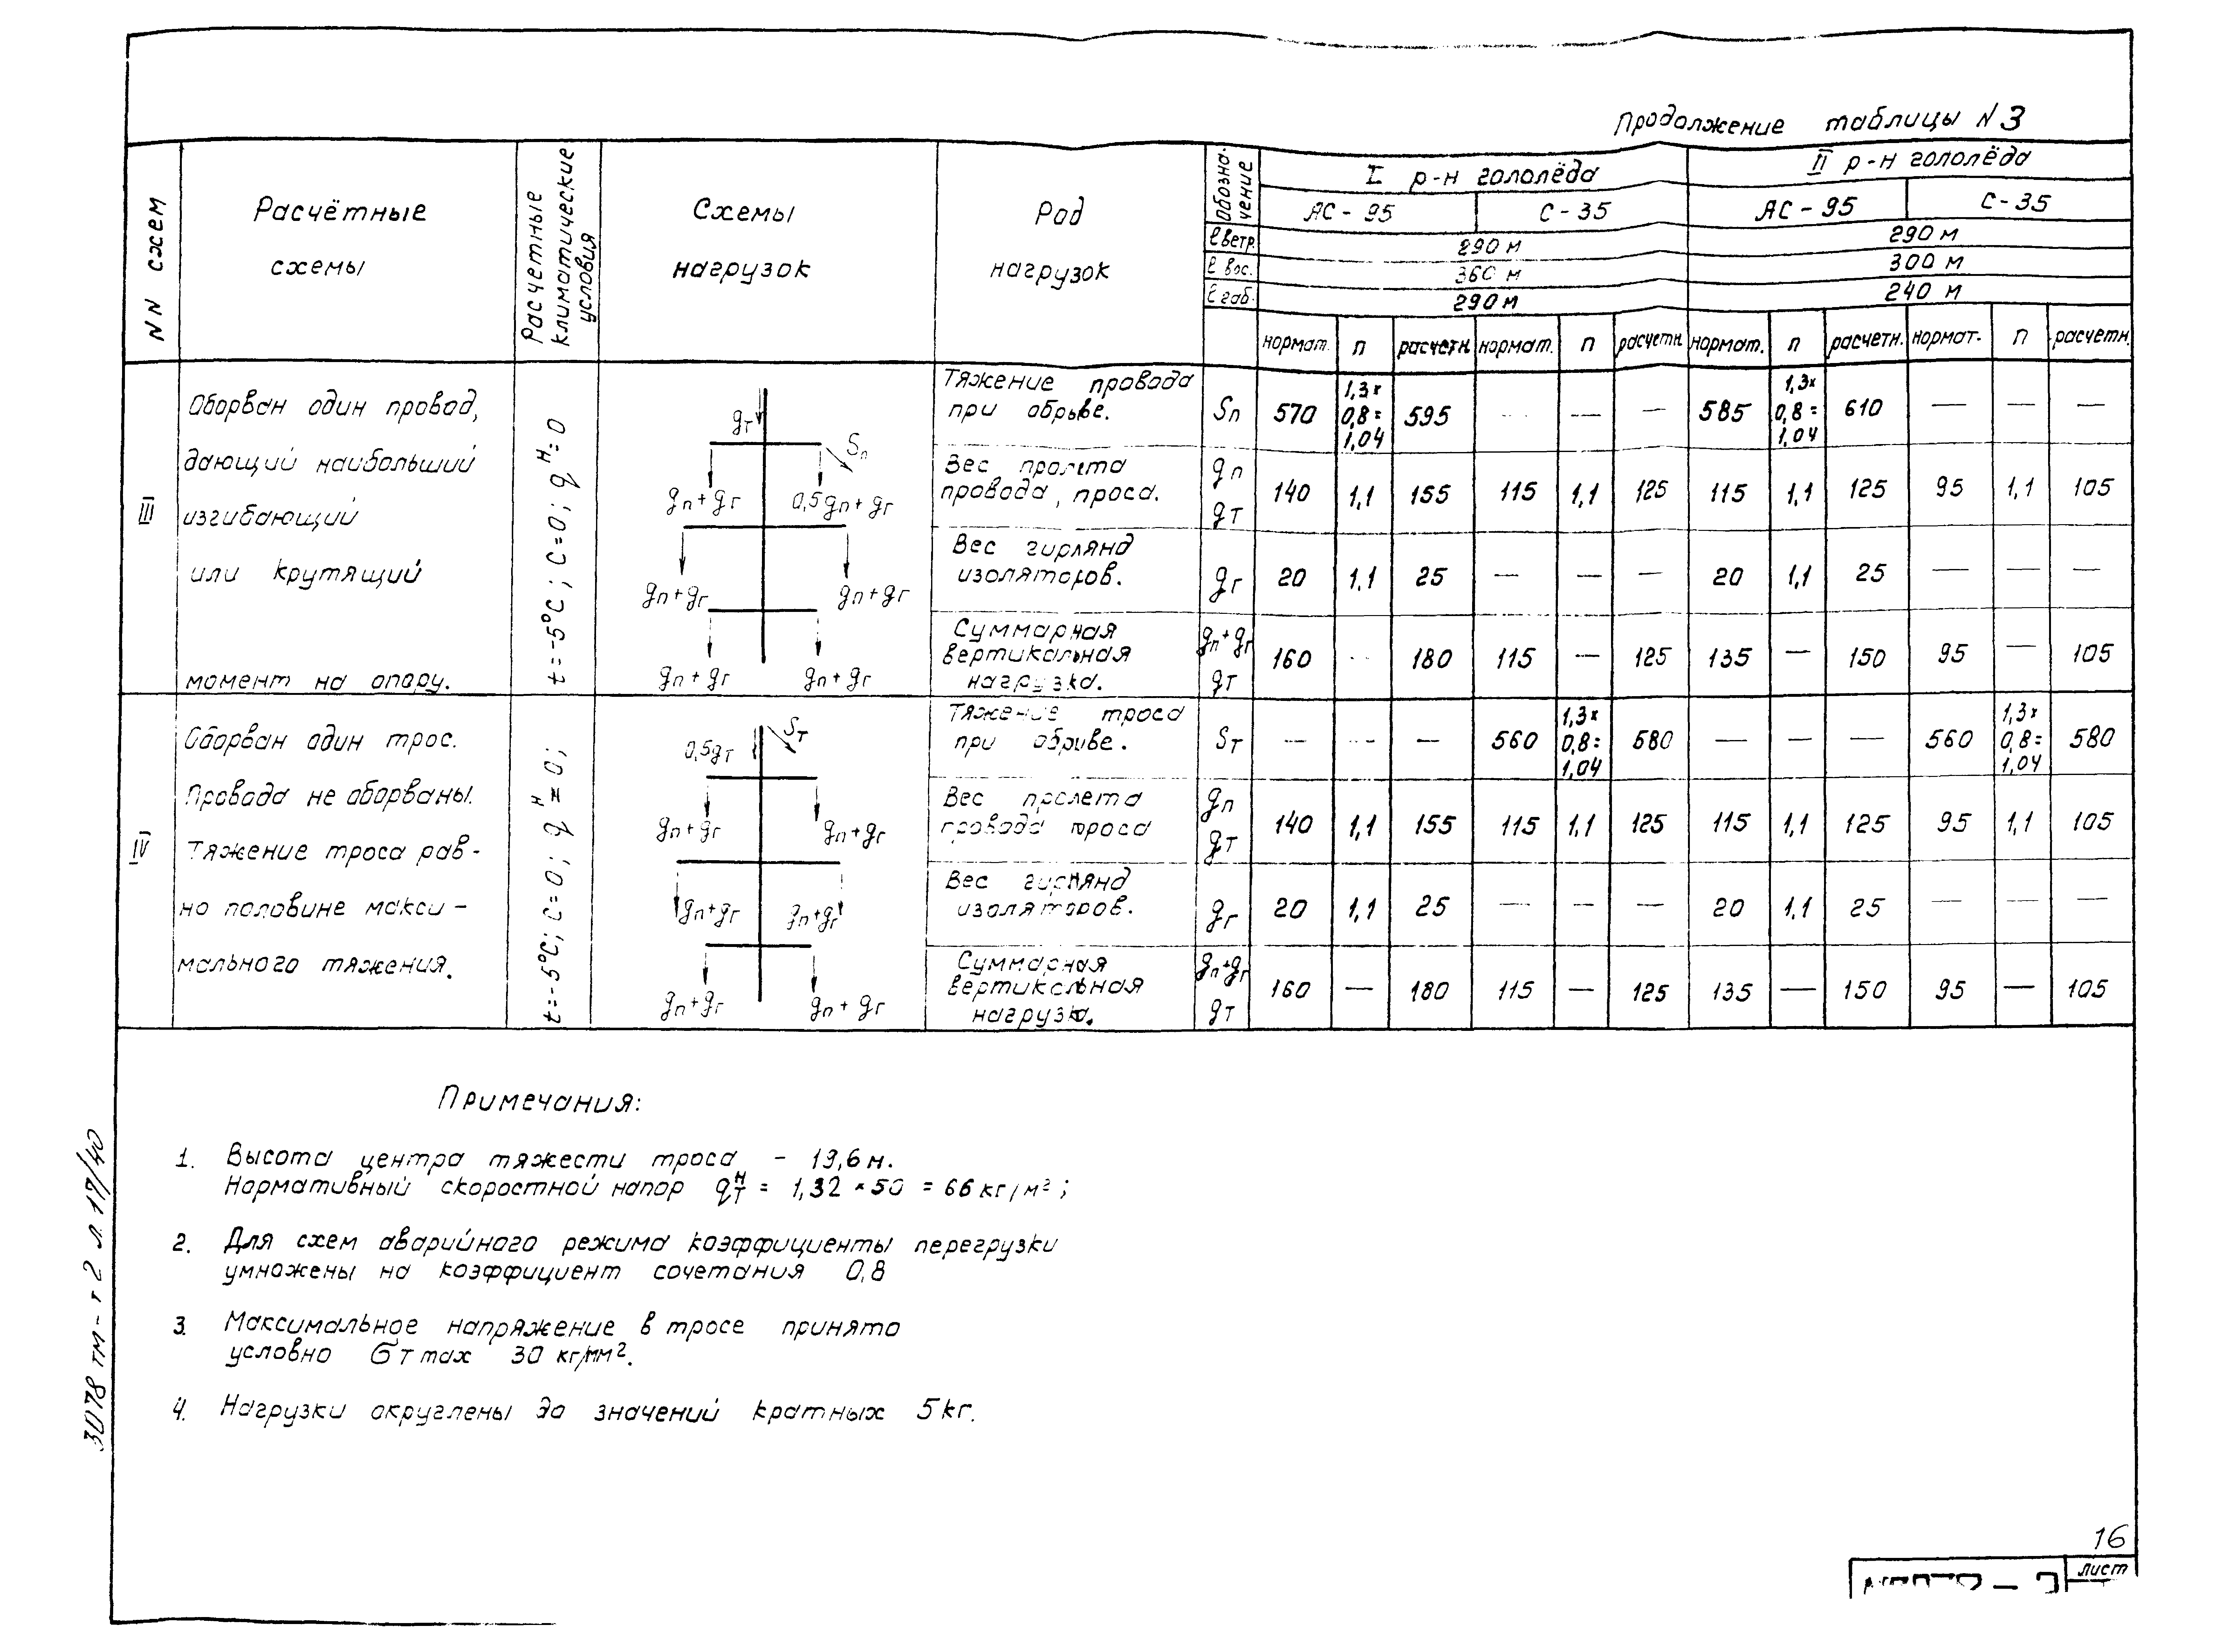 Продолжение таблицы N 3
NN схем
Расчётные
схемы
Расчетные
климатические
условия
Схемы
нагрузок
Род
нагрузок
Обозна-
чение
I р-н гололёда
II р-н гололёда
АС - 95
С - 35
АС - 95
С - 35
ℓ ветр.
290 м
290 м
ℓ вос.
360 м
300 м
ℓ габ.
290 м
240 м
нормат. n расчетн. нормат. n расчетн. нормат. n расчетн. нормат. n расчетн.
III
Оборван один провод,
дающий наибольший
изгибающий
или крутящий
момент на опору.
t=-5°C; C=0; qᴴ=0
gт
Sп
gп+gг
0,5gп+gг
gп+gг
gп+gг
gп+gг
gп+gг
Тяжение провода
при обрыве.
Sп 570 1,3×0,8=1,04 595 — — — 585 1,3×0,8=1,04 610 — — —
Вес пролета
провода, троса.
gп
gт
140 1,1 155 115 1,1 125 115 1,1 125 95 1,1 105
Вес гирлянд
изоляторов.
gг 20 1,1 25 — — — 20 1,1 25 — — —
Суммарная
вертикальная
нагрузка.
gп+gг
gт
160 — 180 115 — 125 135 — 150 95 — 105
IV
Оборван один трос.
Провода не оборваны.
Тяжение троса рав-
но половине макси-
мального тяжения.
t=-5°C; C=0; qᴴ=0;
0,5gт
Sт
gп+gг
gп+gг
gп+gг
gп+gг
gп+gг
gп+gг
Тяжение троса
при обриве.
Sт — — — 560 1,3×0,8=1,04 580 — — — 560 1,3×0,8=1,04 580
Вес пролета
провода троса
gп
gт
140 1,1 155 115 1,1 125 115 1,1 125 95 1,1 105
Вес гирлянд
изоляторов.
gг 20 1,1 25 — — — 20 1,1 25 — — —
Суммарная
вертикальная
нагрузка.
gп+gг
gт
160 — 180 115 — 125 135 — 150 95 — 105
Примечания:
1. Высота центра тяжести троса - 19,6 м.
Нормативный скоростной напор qᴴт = 1,32 × 50 = 66 кг/м²;
2. Для схем аварийного режима коэффициенты перегрузки
умножены на коэффициент сочетания 0,8
3. Максимальное напряжение в тросе принято
условно σт max 30 кг/мм².
4. Нагрузки округлены до значений кратных 5 кг.
3078 тм-т2 л.17/40
16
лист